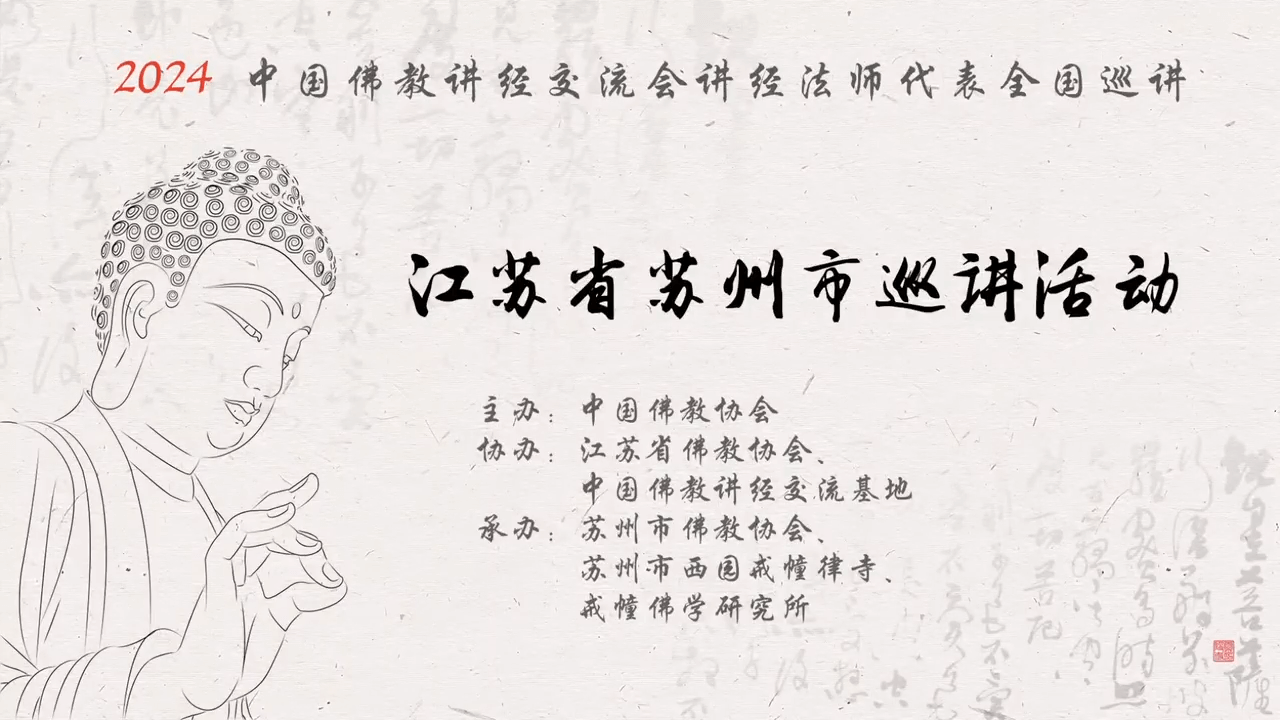 2024 中国佛教讲经交流会讲经法师代表全国巡讲
江苏省苏州市巡讲活动
主办：中国佛教协会
协办：江苏省佛教协会、
中国佛教讲经交流基地
承办：苏州市佛教协会、
苏州市西园戒幢律寺、
戒幢佛学研究所